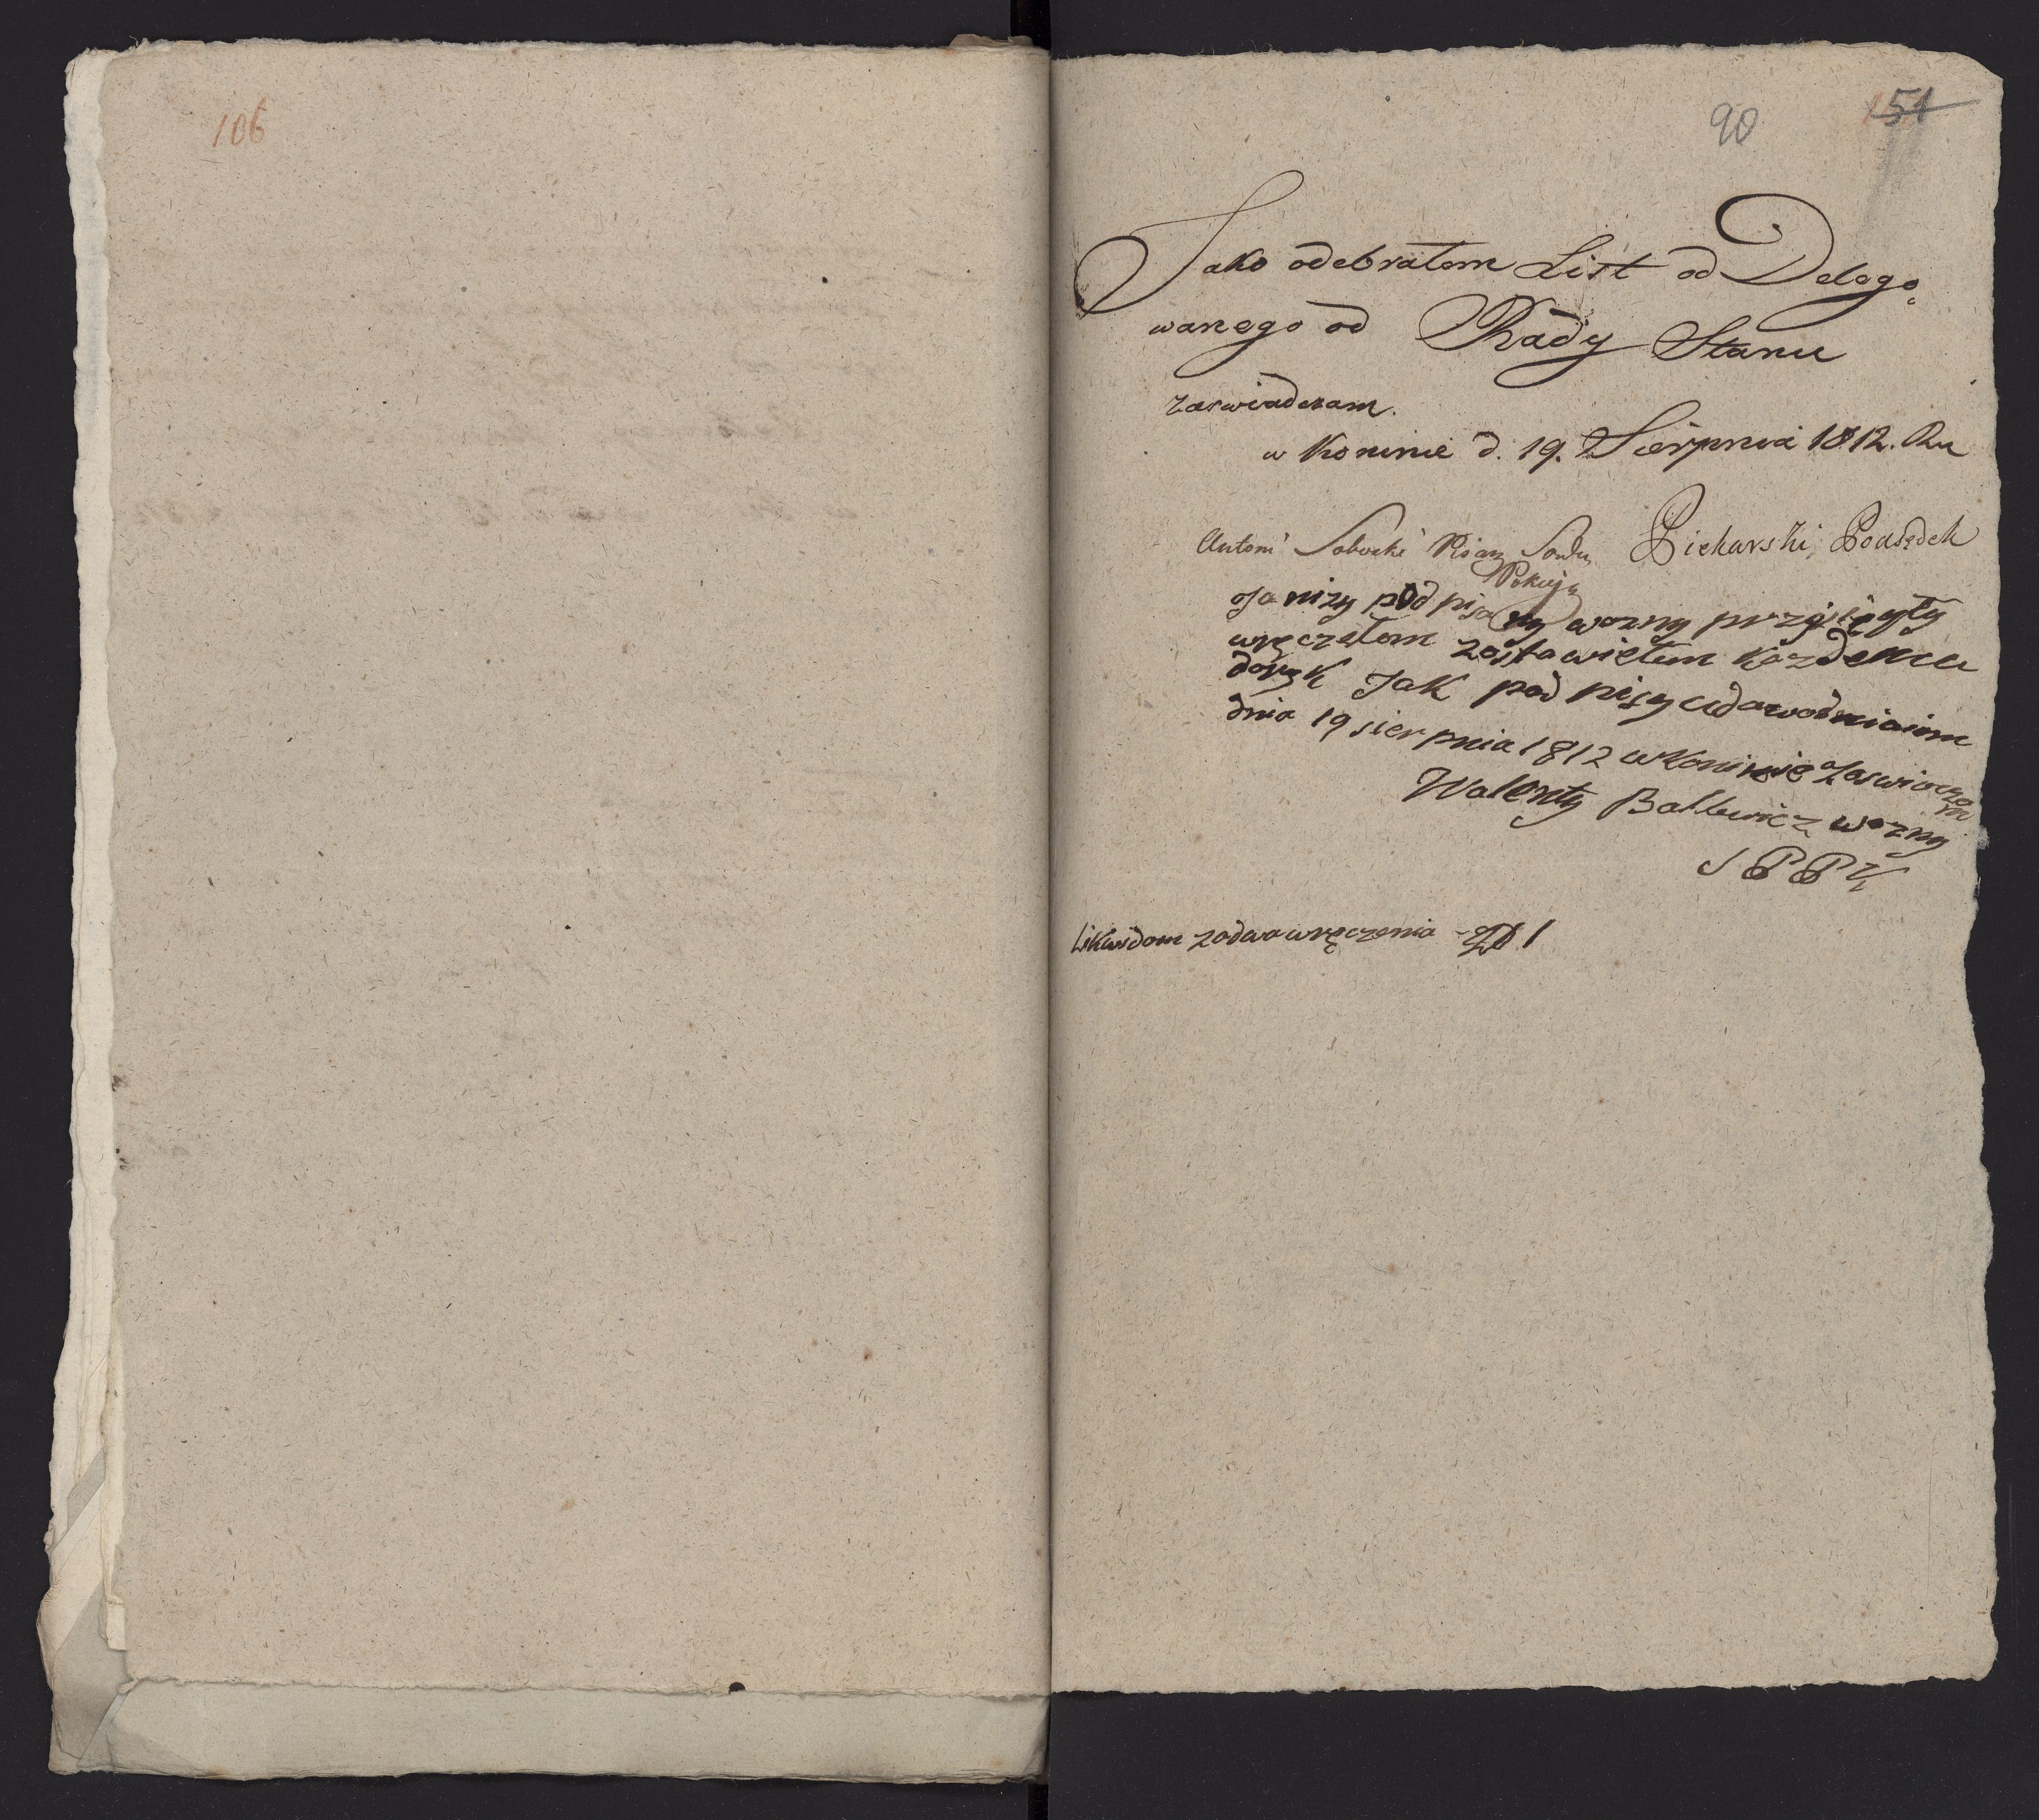 106
90 151
Jako odebrałem List od Delego
wanego od Rady Stanu
zaswiadczam.
w Koninie d. 19. Sierpnia 1812. Ru
Antoni Sobocki Pisarz Sądu Piekarski Podsędek
Pokoju
Ja nizy podpisany wozny przysięgły
wręczełem zostawiełem kazdemu
do rąk Jak pod pisy udawodniaiom
dnia 19 sierpnia 1812 w Koninie Zaswiaczam
Walenty wozny
S P P K
Likwidom za dwa wręczenia Zł 1